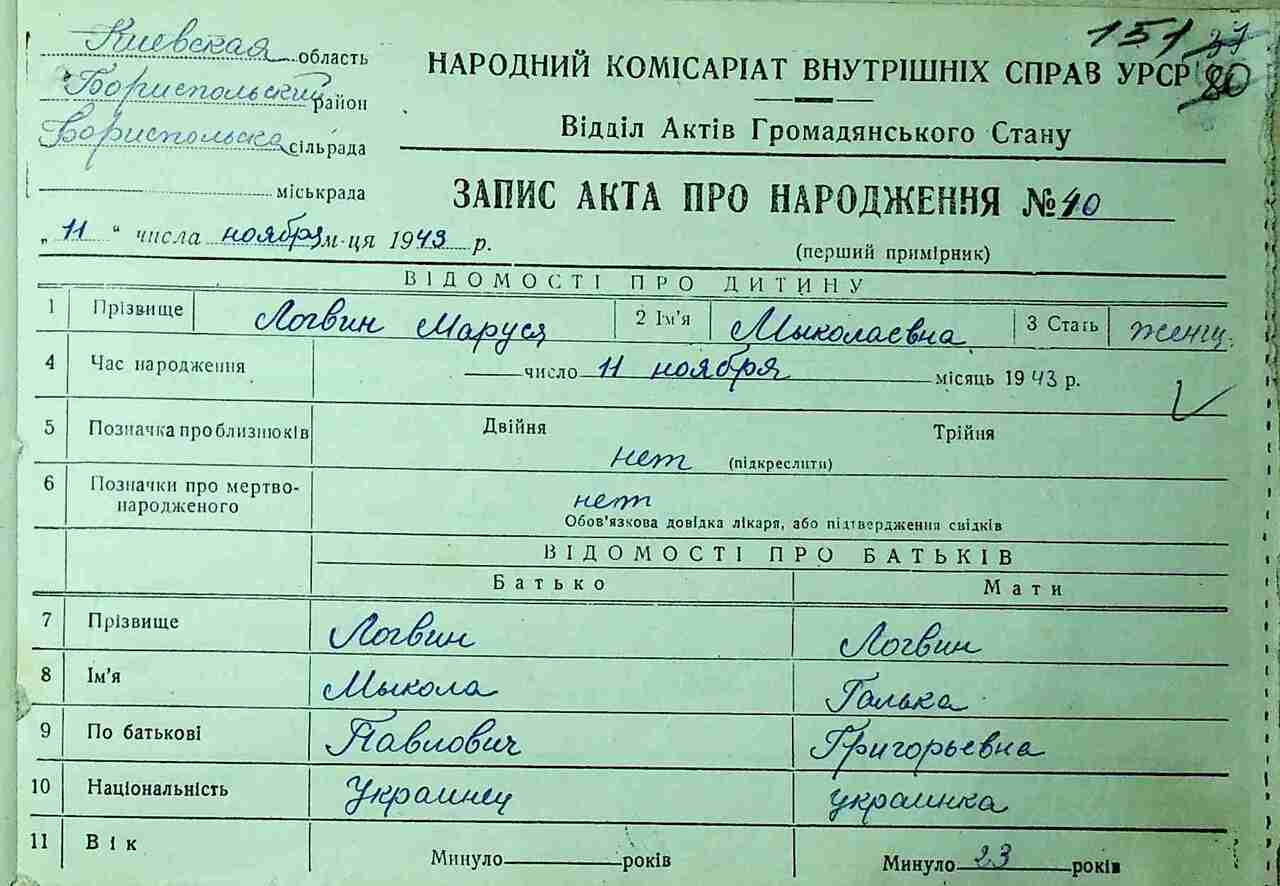 Киевская область
Бориспольский район
Бориспольска сільрада
міськрада
„11“ числа ноября м-ця 1943 р.
151 37
80
НАРОДНИЙ КОМІСАРІАТ ВНУТРІШНІХ СПРАВ УРСР
Відділ Актів Громадянського Стану
ЗАПИС АКТА ПРО НАРОДЖЕННЯ № 40
(перший примірник)
ВІДОМОСТІ ПРО ДИТИНУ
1 Прізвище Логвин Маруся 2 Ім'я Мыколаевна 3 Стать женщ.
4 Час народження число 11 ноября місяць 1943 р.
5 Позначка про близнюків Двійня Трійня
нет (підкреслити)
6 Позначки про мертво-
народженого нет
Обов'язкова довідка лікаря, або підтвердження свідків
ВІДОМОСТІ ПРО БАТЬКІВ
Батько Мати
7 Прізвище Логвин Логвин
8 Ім'я Мыкола Галька
9 По батькові Павлович Григорьевна
10 Національність Украинец украинка
11 Вік Минуло років Минуло 23 років